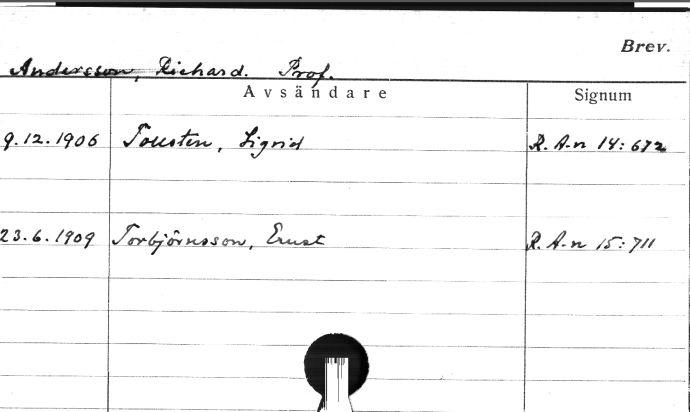 Brev.
Andersson, Richard. Prof.
Avsändare Signum
9.12.1906 Tousten, Sigrid R. A-n 14:672
23.6.1909 Torbjörnsson, Ernst R. A-n 15:711